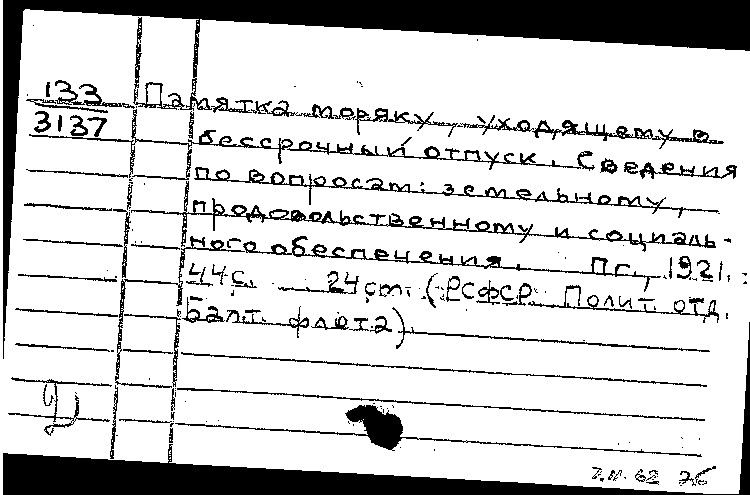 133
3137
Памятка моряку, уходящему в
бессрочный отпуск. Сведения
по вопросам: земельному,
продовольственному и социаль-
ного обеспечения. Пг., 1921.
44с. 24cm. (РСФСР. Полит. отд.
Балт. флота).